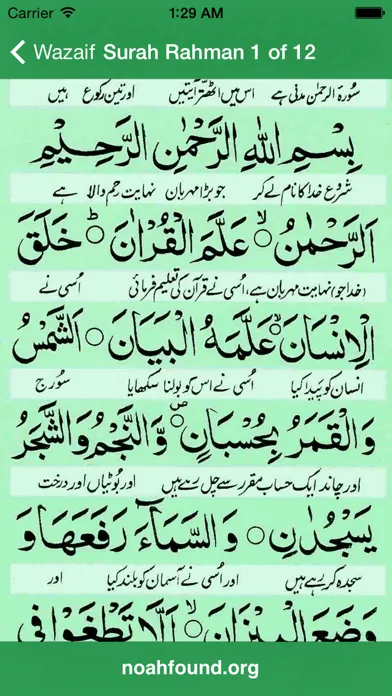 Carrier 1:29 AM
Wazaif Surah Rahman 1 of 12
سُورۃ الرحمٰن مدنی ہے اس میں اٹھتّر آیتیں اور تین رکوع ہیں
بِسْمِ اللهِ الرَّحْمٰنِ الرَّحِيْمِ
شروع خدا کا نام لے کر جو بڑا مہربان نہایت رحم والا ہے
اَلرَّحْمٰنُ ۙ عَلَّمَ الْقُرْاٰنَ ؕ خَلَقَ
(خدا جو) نہایت مہربان ہے، اُسی نے قرآن کی تعلیم فرمائی اُسی نے
الْاِنْسَانَ ۙ عَلَّمَهُ الْبَيَانَ ۝ اَلشَّمْسُ
انسان کو پیدا کیا اُسی نے اس کو بولنا سکھایا سُورج
وَالْقَمَرُ بِحُسْبَانٍ ۪ وَّالنَّجْمُ وَالشَّجَرُ
اور چاند ایک حساب مقرر سے چل رہے ہیں اور بُوٹیاں اور درخت
يَسْجُدٰنِ ۝ وَالسَّمَآءَ رَفَعَهَا وَ
سجدہ کر رہے ہیں اور اُسی نے آسمان کو بلند کیا اور
وَضَعَ الْمِيْزَانَ ۙ اَلَّا تَطْغَوْا فِي
noahfound.org